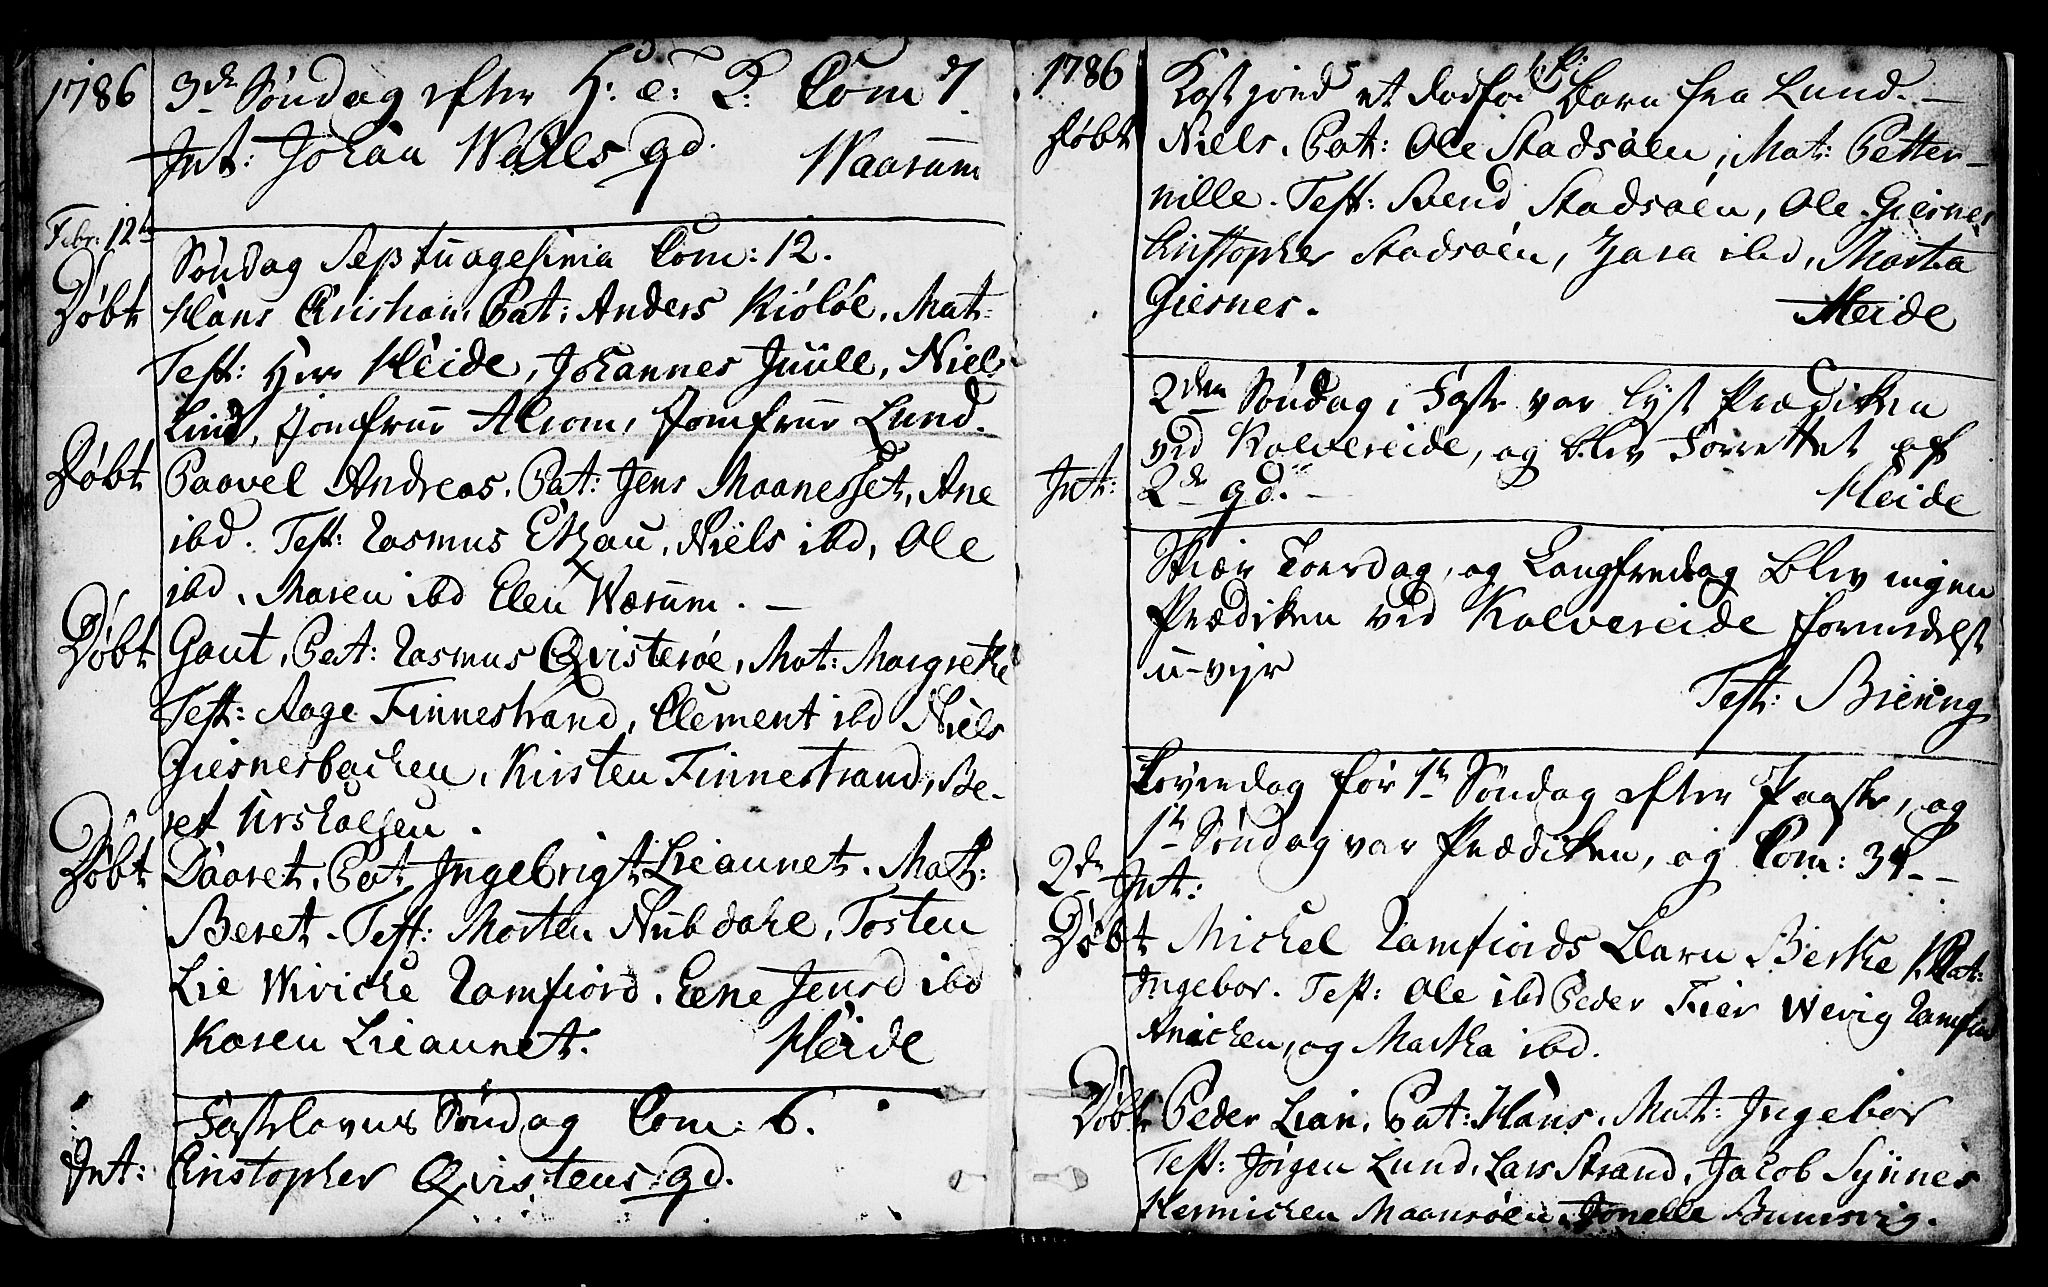 1786 3de Søndag efter H: 3: K: Com 7
Int: Johan Wales qd. Waarum
Febr: 12te
Søndag Septuagesima Com: 12.
Døbt Hans Christian. Pat: Anders Kiøløe. Mat:
Test: Herr Heide, Johannes Juull, Niels
Lind, Jomfrue Alsom, Jomfrue Lund.
Døbt Paavel Andreas. Pat: Jens Maanesset, Ane
ibd. Test: Rasmus Ekau, Niels ibd, Ole
ibd. Maren ibd Elen Wærum. —
Døbt Gaut, Pat: Rasmus Qvisterøe, Mat: Margrethe
Test: Aage Finnestrand, Clement ibd Niels
Giesnesbachen, Kirsten Finnestrand, Be-
ret
Døbt Daaret. Pat Ingebrigt Lieaunet. Mat:
Beret. Test: Morten Nubdahl, Tosten
Lie Wiviche Ramfiord. Lene Jensd ibd
Karen Lieaunet. Heide
Fastelavns Søndag Com: 6.
Int: Christopher Qvistens qd.
1786 et Barn fra Lund. —
Døbt Niels. Pat: Ole Stadsøen, Mat: Petter-
nille. Test: Svend Stadsøen, Ole Giesnes
Christopher Stadsøen, Zara ibd, Martha
Giesnes. Heide
2den Søndag i Faste var lyst Prædiken
ved Kalvereide, og blev Forrettet af
Int: 2de qd. — Heide
Skiær Torsdag, og Langfredag blev ingen
Prædiken ved Kalvereide formedelst
u-veyr
Test: Biering
Løverdag før 1te Søndag efter Paaske, og
1te Søndag var Prædiken, og Com: 34 --
2de Int:
Døbt Michel Ramfiords Barn Berthe Mat:
Ingebor. Test: Ole ibd Peder Fier Wevig Ramfiord
Anichen, og Martha ibd.
Døbt Peder Lian. Pat: Hans. Mat: Ingebor
Test: Jørgen Lund, Lars Strand, Jacob Synnes
Hermichen Maansøen, Jonelle